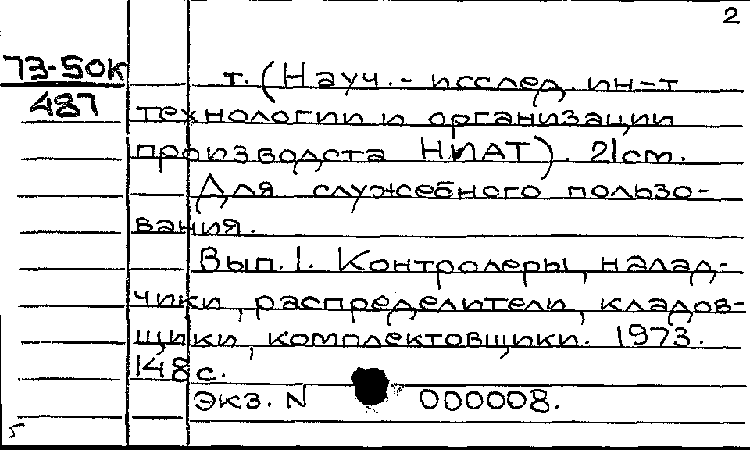 2
73-50К
487
т. (Науч.- исслед. ин-т
технологии и организации
производста НИАТ). 21 cm.
Для служебного пользо-
вания.
Вып. 1. Контролеры, налад-
чики, распределители, кладов-
щики, комплектовщики. 1973.
148 с.
Экз. N 000008.
5